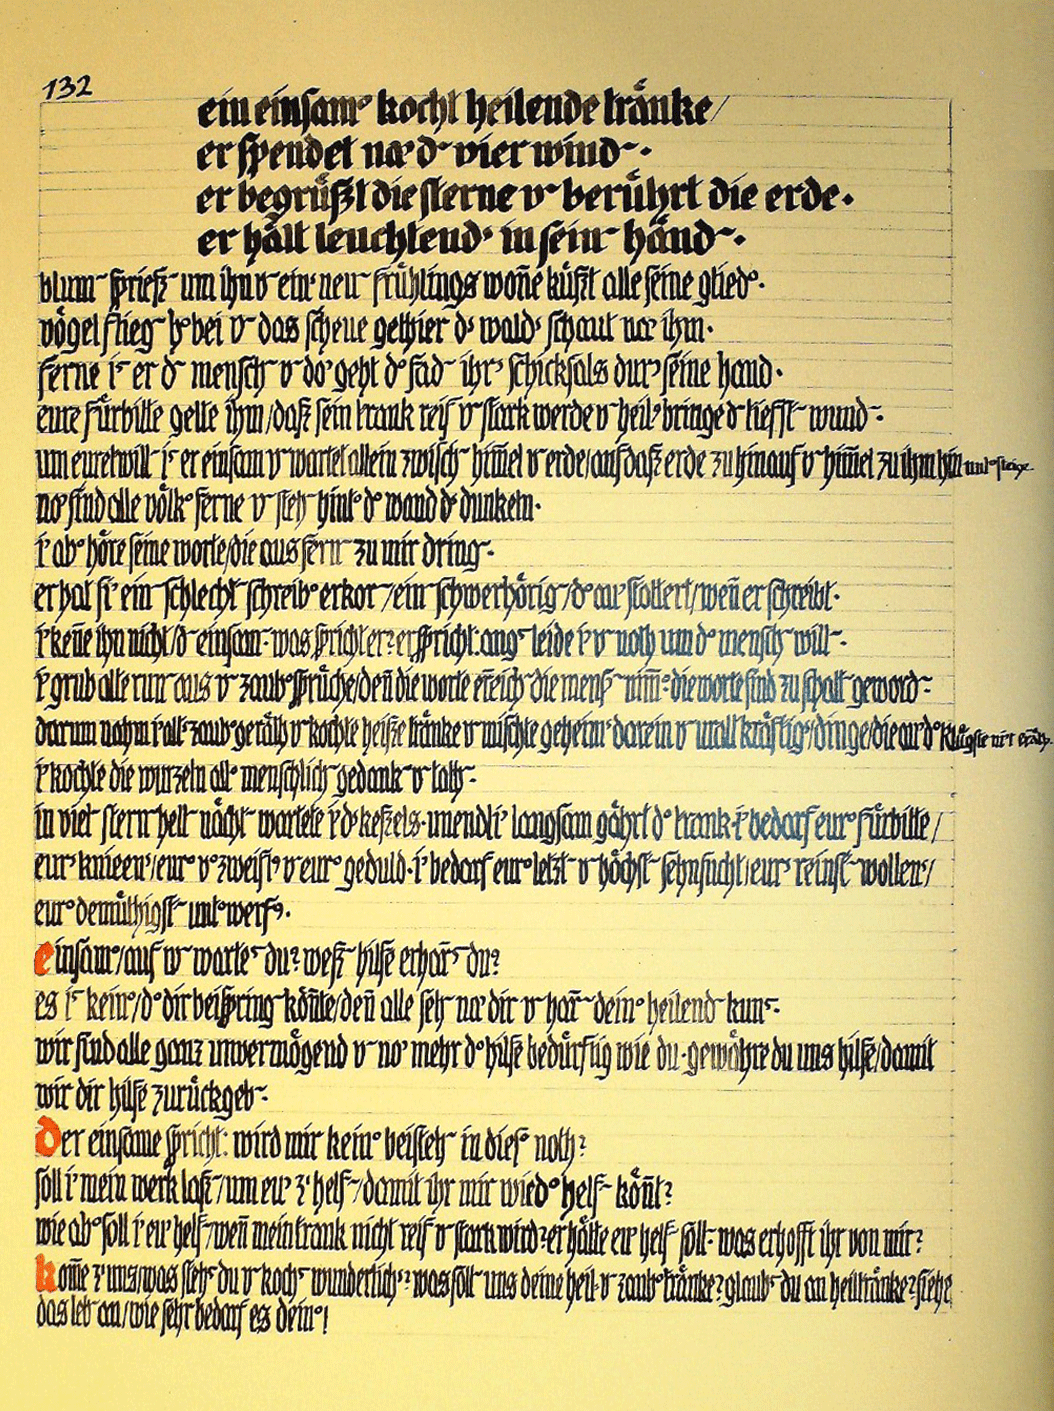 132
ein einsam’ kocht heilende tränke/
er spendet na’ d~ vier wind~.
er begrüßt die sterne u~ berührt die erde.
er hält leuchtend’ in sein~ händ~.
blum~ sprieß~ um ihn u~ ein’ neu~ frühlings won̄e küßt alle seine glied’.
vögel flieg~ h’bei u~ das scheue gethier d’ wald’ schaut na’ ihm.
ferne i~ er d~ mensch~ u~ do’ geht d’ fad~ ihr’ schicksals dur’ seine hand.
eure fürbitte gelte ihm/daß sein trank reif u~ stark werde u~ heil’ bringe d’ tiefst~ wund~.
um euretwill~ i~ er einsam u~ wartet allein zwisch~ him̄el u~ erde/auf daß erde zu hinauf u~ him̄el zu ihm hin unt’ steige.
no’ sind alle völk’ ferne u~ steh~ hint’ d’ wand d’ dunkeln.
i’ ab’ höre seine worte/die aus fern~ zu mir dring~.
er hat si’ ein~ schlecht~ schreib’ erkor~/ein~ schwerhörig~/d’ au’ stottert/wen̄ er schreibt.
i’ ken̄e ihn nicht/d~ einsam~. was spricht er? er spricht: angs~ leide i’ u~ noth um d’ mensch~ will~.
i’ grub alte run~ aus u~ zaub’sprüche/den̄ die worte erreich~ die mensch~ nim̄’. die worte sind zu schall geword~.
darum nahm i’ alt’ zaub’geräth u~ kochte heiße tränke u~ mischte geheim’ darein u~ uralt kräftig’/dinge/die au’ d’ klügste nit eräth.
i’ kochte die wurzeln all’ menschlich~ gedank~ u~ tath~.
in viel~ sternhell~ nächt~ wartete i’ d’ keßels. unendli’ langsam gährt d’ trank. i’ bedarf eur’ fürbitte/
eur’ knieen’/eur’ v’zweifl’ u~ eur’ geduld. i’ bedarf eur’ letzt~ u~ höchst~ sehnsucht/eur’ reinst~ wollen’/
eur’ demüthigst~ unt’werf’.
einsam’/auf w~ warte~ du? weß~ hilfe erhar̄~ du?
es i~ kein’/d’ dir beispring~ kön̄te/den̄ alle seh~ na’ dir u~ har̄~ dein’ heilend~ kuns~.
wir sind alle ganz unvermögend u~ no’ mehr d’ hilfe bedürftig wie du. gewähre du uns hilfe/damit
wir dir hilfe zurückgeb~.
der einsame spricht: wird mir kein’ beisteh~ in dies’ noth?
soll i’ mein werk laß~/um eu’ z’ helf~/damit ihr mir wied’ helf~ kön̄t?
wie ab’ soll i’ eu’ helf~/wen̄ mein trank nicht reif u~ stark wird? er hätte eu’ helf~ soll~. was erhofft ihr von mir?
kom̄e z’ uns/was steh~ du u~ koch~ wunderlich’? was soll~ uns deine heil- u~ zaub’tränke? glaub~ du an heiltränke? siehe
das leb~ an/wie sehr bedarf es dein’!